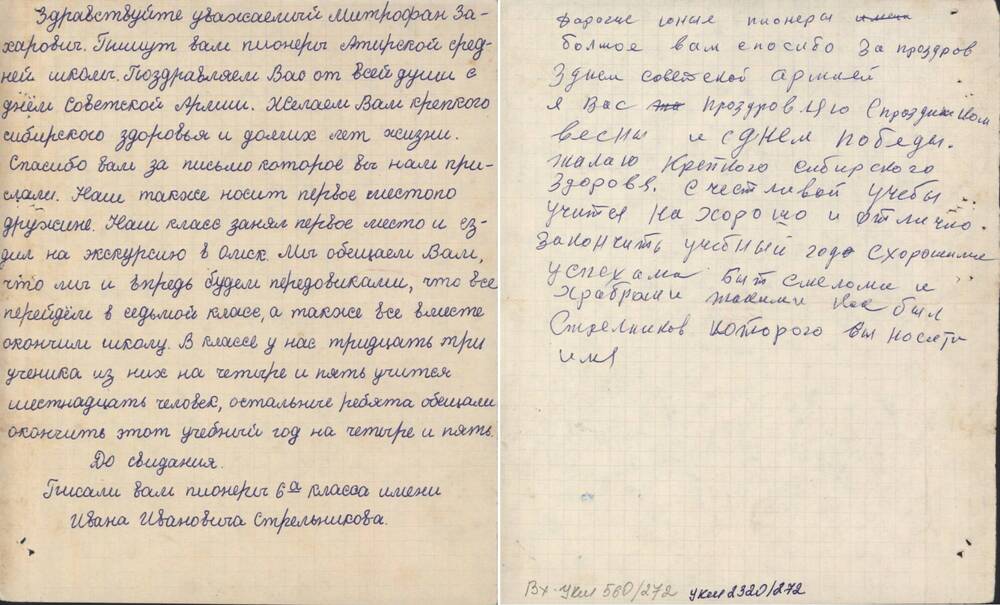 Здравствуйте уважаемый Митрофан За-
харович. Пишут вам пионеры Атирской сред-
ней школы. Поздравляем Вас от всей души с
днём Советской Армии. Желаем Вам крепкого
сибирского здоровья и долгих лет жизни.
Спасибо вам за письмо которое вы нам при-
слали. Наш также носит первое место по
дружине. Наш класс занял первое место и ез-
дил на экскурсию в Омск. Мы обещаем Вам,
что мы и впредь будем передовиками, что все
перейдём в седьмой класс, а также все вместе
окончим школу. В классе у нас тридцать три
ученика из них на четыре и пять учится
шестнадцать человек, остальные ребята обещали
окончить этот учебный год на четыре и пять.
До свидания.
Писали вам пионеры 6а класса имени
Ивана Ивановича Стрельникова.
дарогие юные пионеры
болшое вам спосибо За проздров
Зднем советской армией
я Вас проздровляю Спраздником
весны и сДНем победы.
жалаю Крепкого сибирского
Здоровя. Счестливой учебы
учится на хорошо и отлично.
Закончить учебный год Схорошими
успехами быт смеломи и
храбрами такими как был
Стрелников которого вы носети
имя
Вх. укм 560/272 укм 2320/272